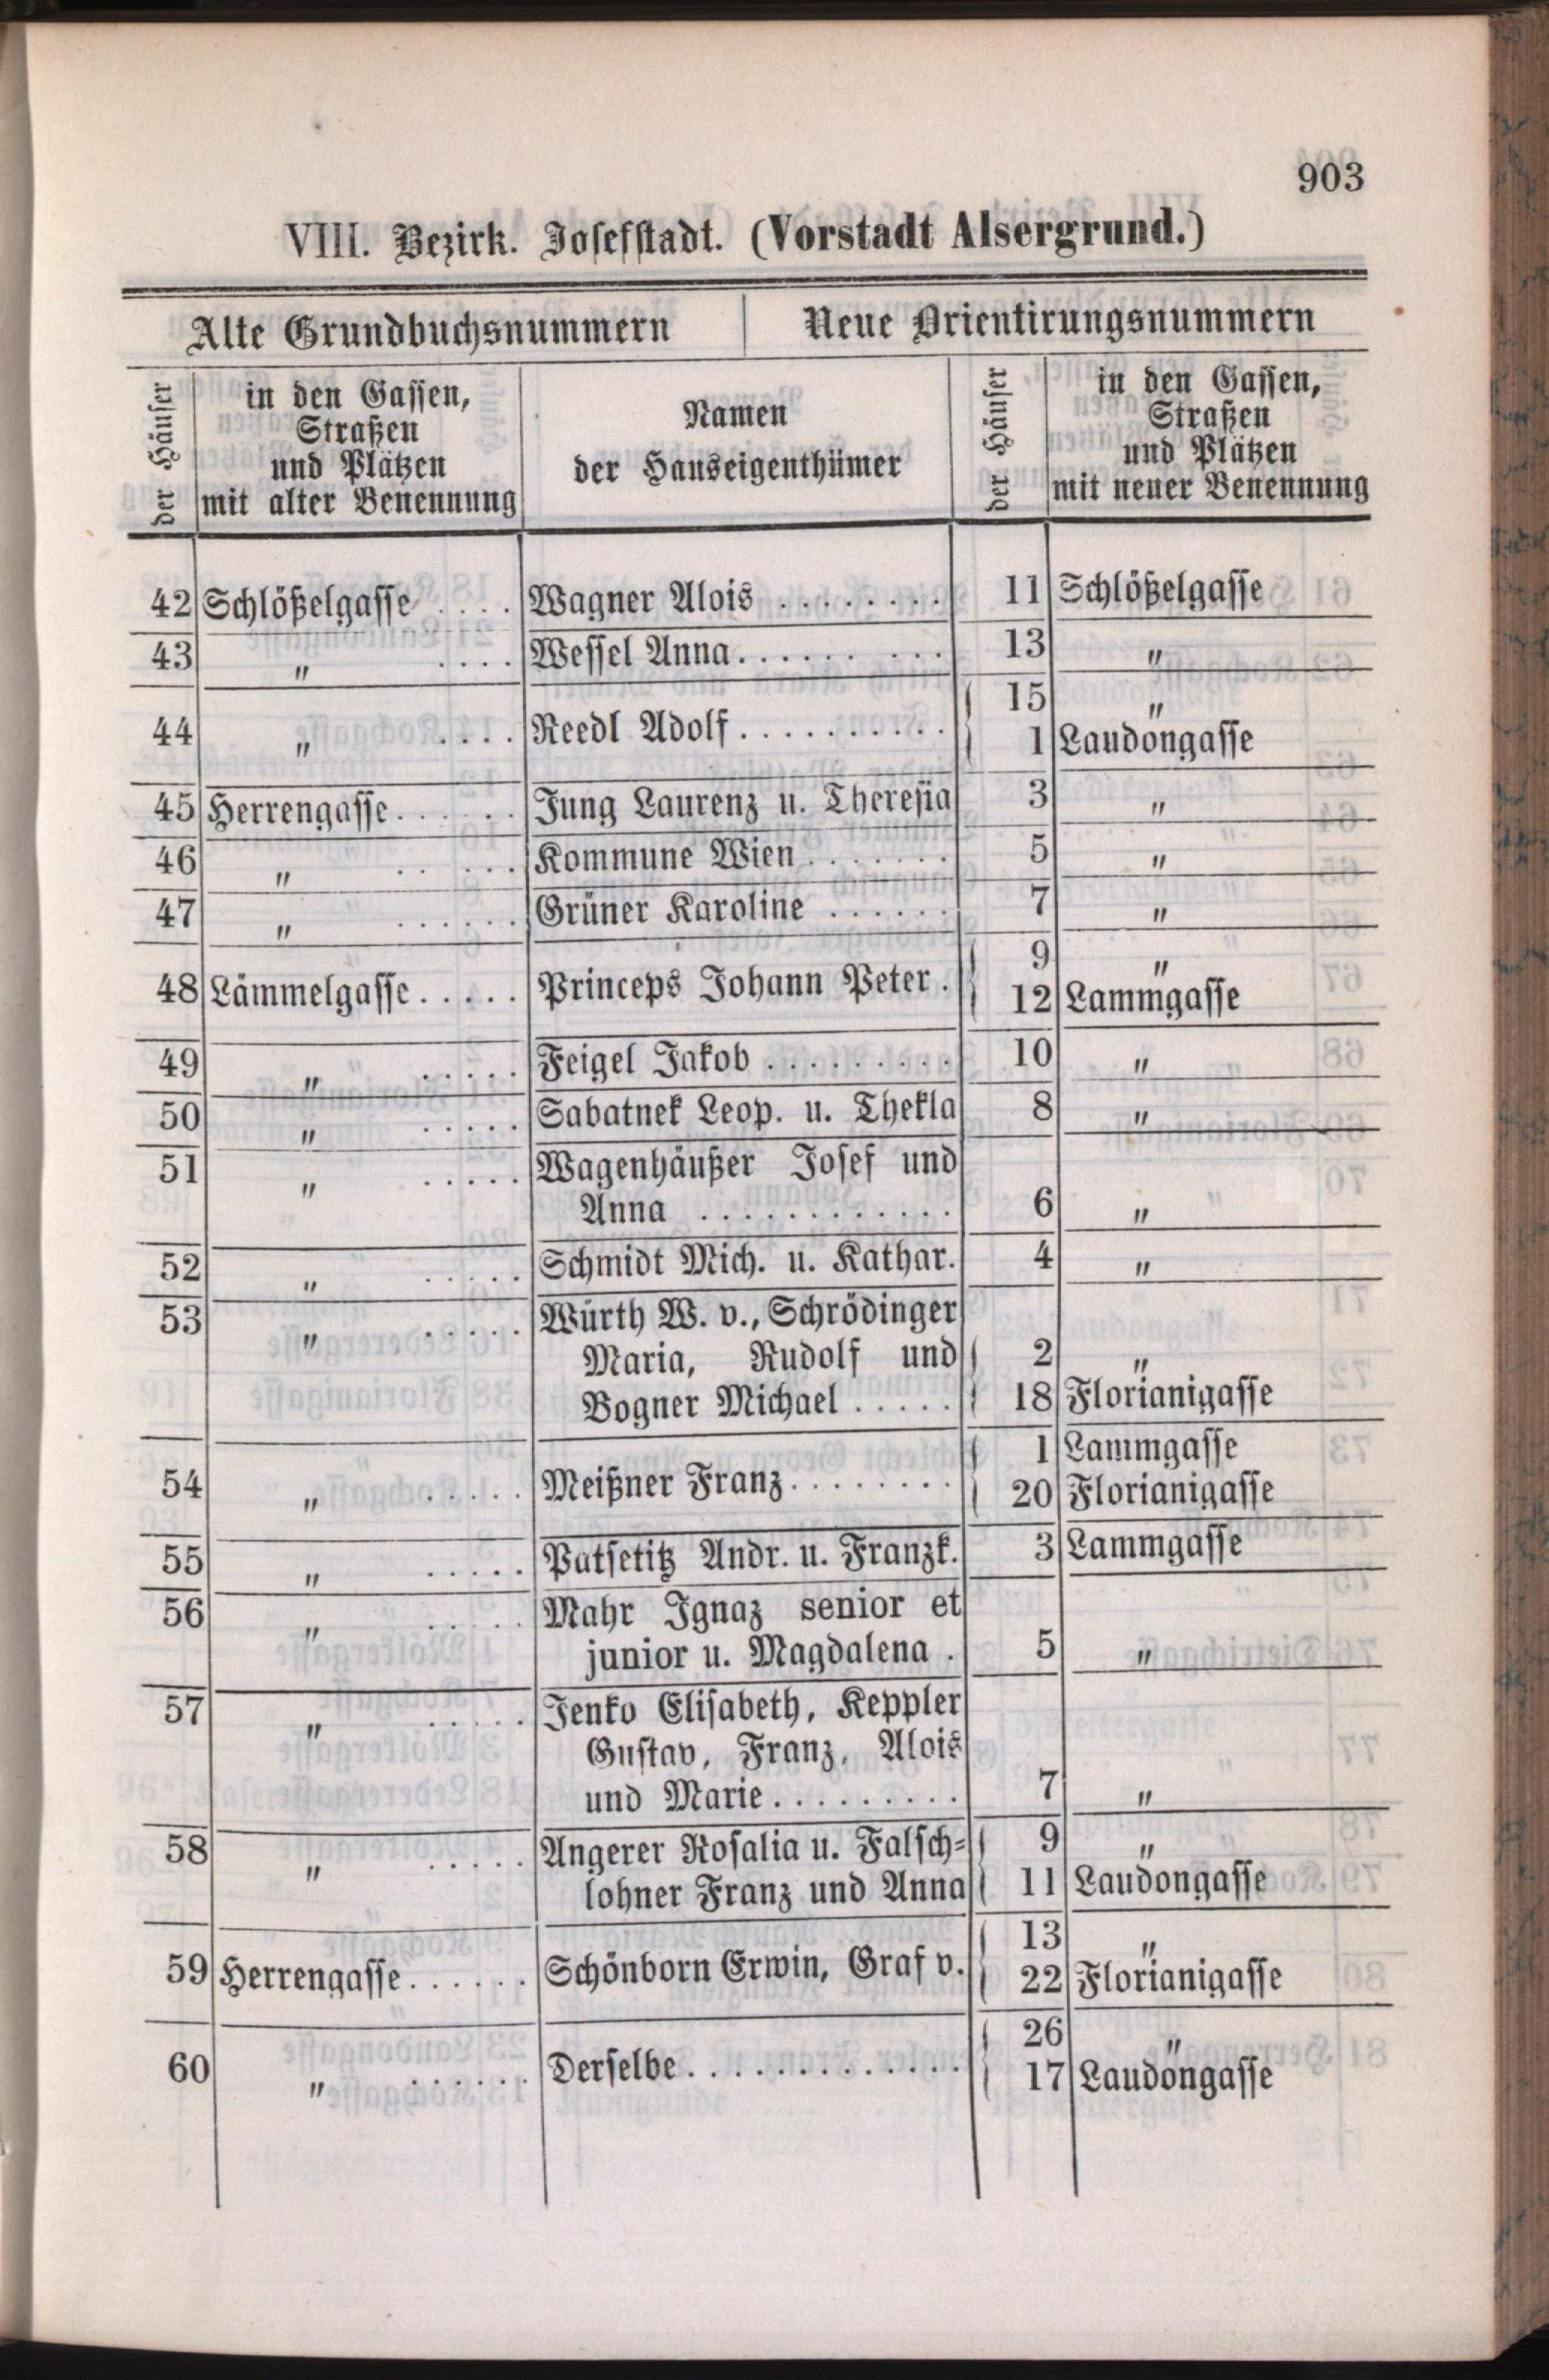 903
VIII. Bezirk. Josefstadt. (Vorstadt Alsergrund.)
Alte Grundbuchsnummern Neue Orientirungsnummern
der Häuser
in den Gassen,
Straßen
und Plätzen
mit alter Benennung
Namen
der Hauseigenthümer
der Häuser
in den Gassen,
Straßen
und Plätzen
mit neuer Benennung
42 Schlößelgasse .... Wagner Alois ......... 11 Schlößelgasse
43 " .... Wessel Anna.......... 13 "
15 "
44 " .... Reedl Adolf.......... 1 Laudongasse
45 Herrengasse...... Jung Laurenz u. Theresia 3 "
46 " ...... Kommune Wien ....... 5 "
47 " ...... Grüner Karoline ...... 7 "
9 "
48 Lämmelgasse..... Princeps Johann Peter . 12 Lammgasse
49 " ..... Feigel Jakob ......... 10 "
50 " ..... Sabatnek Leop. u. Thekla 8 "
51 " ..... Wagenhäußer Josef und
Anna ............ 6 "
52 " ..... Schmidt Mich. u. Kathar. 4 "
53 " ..... Würth W. v., Schrödinger
Maria, Rudolf und 2 "
Bogner Michael ..... 18 Florianigasse
1 Lammgasse
54 " ..... Meißner Franz........ 20 Florianigasse
55 " ..... Patsetitz Andr. u. Franzk. 3 Lammgasse
56 " ..... Mahr Ignaz senior et
junior u. Magdalena . 5 "
57 " ..... Jenko Elisabeth, Keppler
Gustav, Franz, Alois
und Marie......... 7 "
58 " ..... Angerer Rosalia u. Falsch- 9 "
lohner Franz und Anna 11 Laudongasse
13 "
59 Herrengasse...... Schönborn Erwin, Graf v. 22 Florianigasse
26 "
60 " ...... Derselbe............. 17 Laudongasse